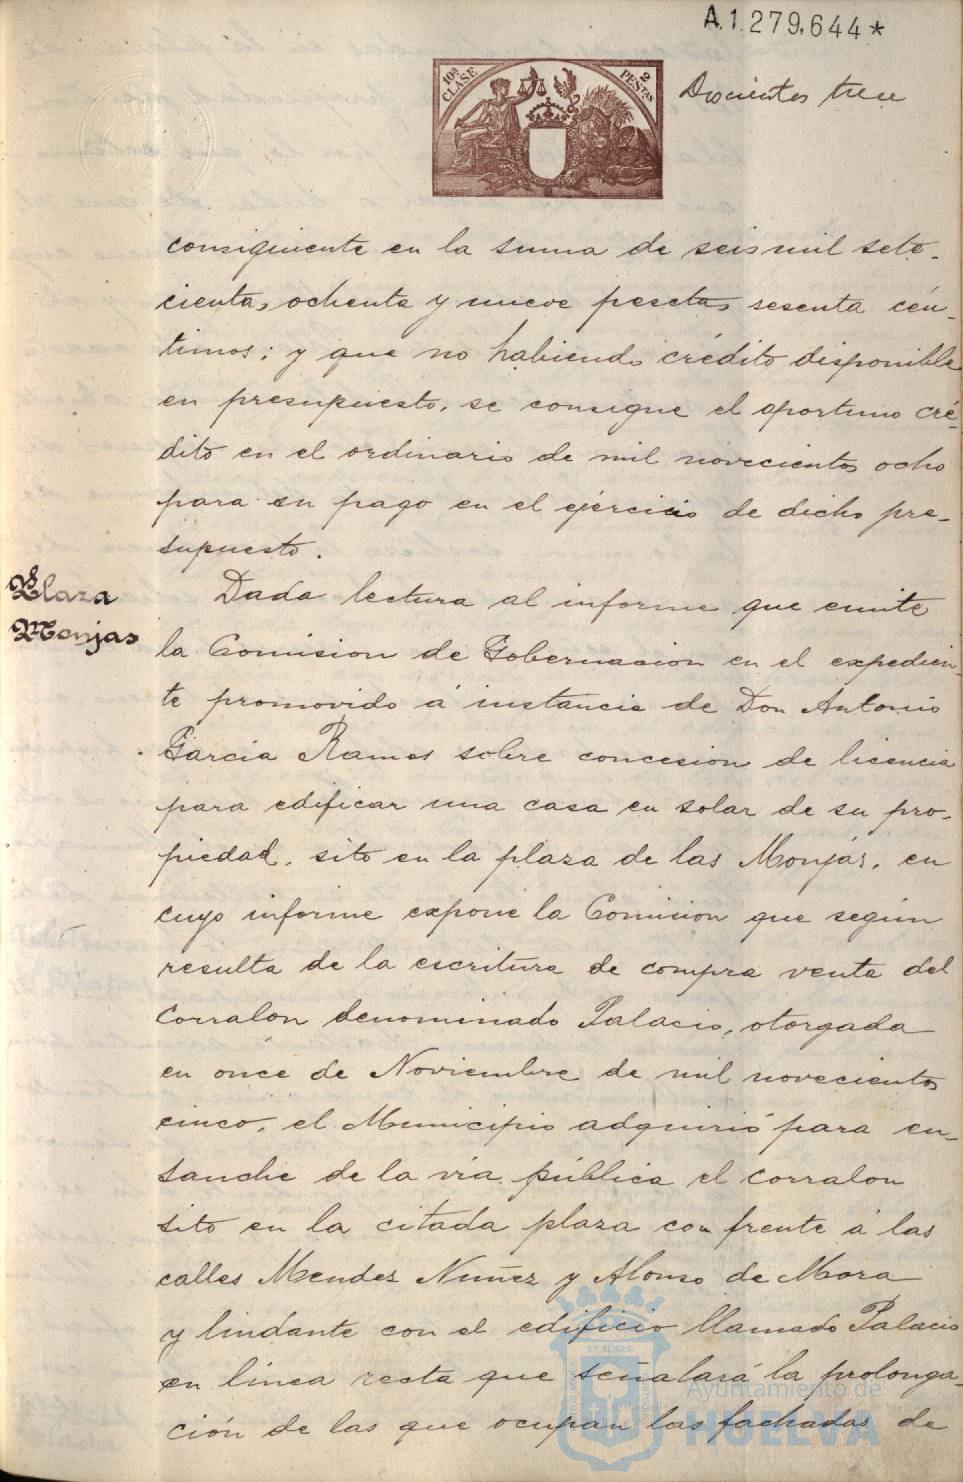 A.1.279,644*
10ª CLASE
2 PESTAS
Doscientos trece
consiguiente en la suma de seis mil sete-
cientas ochenta y nueve pesetas sesenta cén-
timos; y que no habiendo crédito disponible
en presupuesto, se consigne el oportuno cré-
dito en el ordinario de mil novecientos ocho
para su pago en el ejercicio de dicho pre-
supuesto.
Plaza
Monjas
Dada lectura al informe que emite
la Comision de Gobernacion en el expedien-
te promovido á instancia de Don Antonio
García Ramos sobre concesion de licencia
para edificar una casa en solar de su pro-
piedad, sito en la plaza de las Monjas, en
cuyo informe expone la Comision que según
resulta de la escritura de compra venta del
Corralon denominado Palacio, otorgada
en once de Noviembre de mil novecientos
cinco, el Municipio adquirió para en-
sanche de la via pública el corralon
sito en la citada plaza con frente á las
calles Mendez Nuñez y Alonso de Mora
y lindante con el edificio llamado Palacio
en línea recta que señalará la prolonga-
ción de las que ocupan las fachadas de
Ayuntamiento de
HUELVA